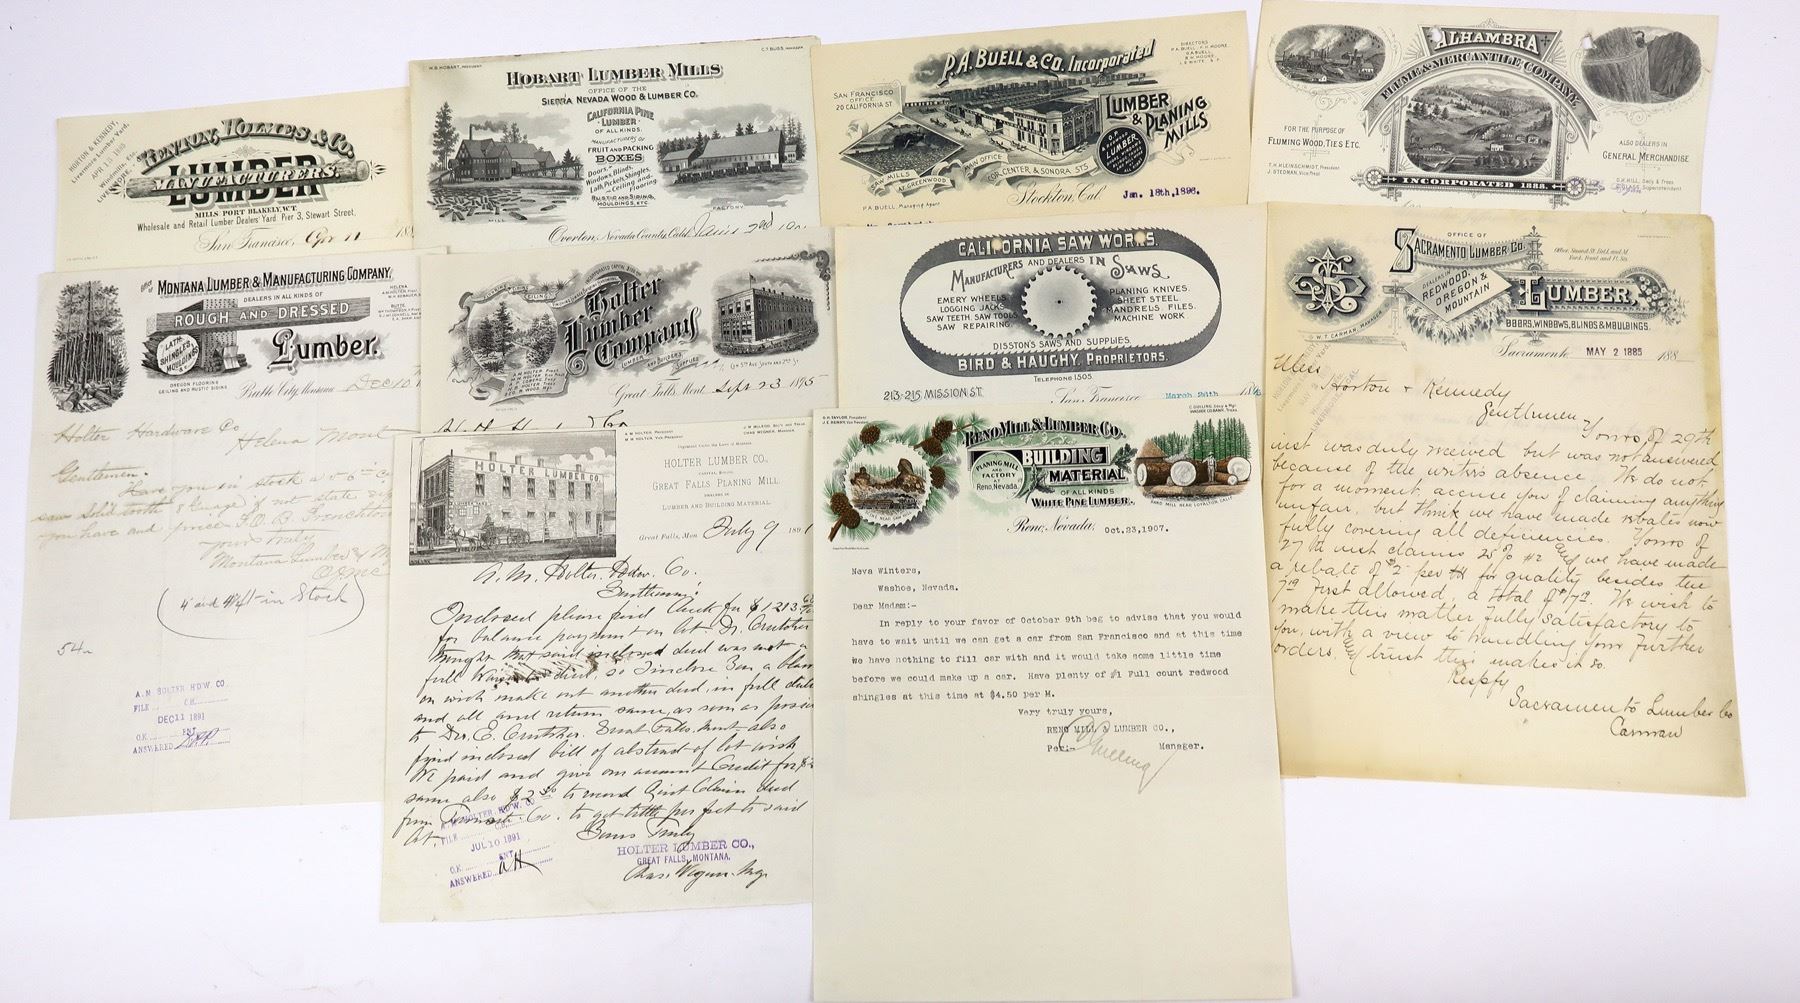 HORTON & KENNEDY,
Livermore Lumber Yard,
APR 15 1889
RENTON, HOLMES & CO.
LUMBER
MANUFACTURERS.
MILLS PORT BLAKELY, W.T.
Wholesale and Retail Lumber Dealers' Yard Pier 3, Stewart Street,
San Francisco,
W.B. HOBART, PRESIDENT
C.T. BLISS, MANAGER
HOBART LUMBER MILLS
OFFICE OF THE
SIERRA NEVADA WOOD & LUMBER CO.
CALIFORNIA PINE
LUMBER
OF ALL KINDS.
MANUFACTURERS OF
FRUIT AND PACKING
BOXES
Doors,
Windows, Blinds,
Lath, Pickets, Shingles,
Ceiling and
Flooring
RUSTIC AND SIDING,
MOULDINGS, ETC.
MILL
FACTORY
Overton, Nevada County, Cal.
P.A. BUELL & CO. Incorporated
DIRECTORS
P.A. BUELL
H. MOORE
SAN FRANCISCO
OFFICE
20 CALIFORNIA ST
LUMBER
& PLANING
MILLS
SAW MILLS
AT GREENWOOD
MAIN OFFICE
COR. CENTER & SONORA STS
LUMBER
P.A. BUELL, Managing Agent
Stockton, Cal.
Jan. 18th, 1896.
ALHAMBRA
FLUME & MERCANTILE COMPANY.
FOR THE PURPOSE OF
FLUMING WOOD, TIES ETC.
T.H. KLEINSCHMIDT, President
J. STEDMAN, Vice Prest.
ALSO DEALERS IN
GENERAL MERCHANDISE
D.H. HILL, Sec'y & Treas
Superintendent
INCORPORATED 1888.
Office of
MONTANA LUMBER & MANUFACTURING COMPANY,
DEALERS IN ALL KINDS OF
ROUGH AND DRESSED
Lumber.
LATH
SHINGLES
MOULDINGS
OREGON FLOORING
CEILING AND RUSTIC SIDING
HELENA
BUTTE
Butte City, Montana Dec 10
Holter Hardware Co
Helena Mont
Gentlemen.
Have you in stock a
saw solid tooth 8 Guage if not state
you have and price F.O.B.
Yours truly
Montana Lumber & M
(4" and 4 1/4" in Stock)
54
A. M HOLTER H'D'W. CO.
FILE CH.
DEC 11 1891
O.K. ENT
ANSWERED
INCORPORATED CAPITAL
Holter
Lumber
Company
LUMBER AND BUILDERS SUPPLIES
Cor 5th Ave South and 2nd St.
Great Falls, Mont. Sept 23 1895
CALIFORNIA SAW WORKS.
MANUFACTURERS AND DEALERS IN SAWS,
EMERY WHEELS
LOGGING JACKS
SAW TEETH, SAW TOOLS
SAW REPAIRING.
PLANING KNIVES.
SHEET STEEL.
MANDRELS FILES.
MACHINE WORK
DISSTON'S SAWS AND SUPPLIES.
BIRD & HAUGHY, PROPRIETORS.
TELEPHONE 1505.
213-215 MISSION ST.
San Francisco March 26th
OFFICE OF
SACRAMENTO LUMBER CO.
Office, Second St. Bet L and M
Yard, Front and M Sts.
DEALERS IN
REDWOOD,
OREGON &
MOUNTAIN
LUMBER,
DOORS, WINDOWS, BLINDS & MOULDINGS.
W. T. CARMAN, MANAGER
Sacramento MAY 2 1885 188
Mess
Horton & Kennedy
Gentlemen
Yours of 29th
inst was duly received but was not answered
because of the writers absence. We do not
for a moment, accuse you of claiming anything
unfair, but think we have made rebates now
fully covering all deficiencies. Yours of
27th inst claims 25% #2 & we have made
a rebate of $2 per M for quality besides the
first allowed, a total of
make this matter fully satisfactory to
you, with a view to handling your further
orders, & trust this makes it so.
Respfy
Sacramento Lumber Co
Carman
HOLTER LUMBER CO.
A M HOLTER, President
M M HOLTER, Vice President
CHAS WEGNER, MANAGER
Organized Under the Laws of Montana
HOLTER LUMBER CO.,
GREAT FALLS PLANING MILL.
DEALERS IN
LUMBER AND BUILDING MATERIAL
Great Falls, Mon July 9 1891
A. M. Holter Hdw. Co.
Gentlemen:
Enclosed please find Check for $1213
for balance payment on
thought that said enclosed deed was not a
full Warrantee deed, so I inclose you a blank
on wich make out another deed, in full
and all and return same, as soon as
to
find inclosed bill of abstract of lot wich
We paid and give our account Credit for
same also $2.50 to record Quit Claim deed
from Co. to get title perfect to said
lot.
Yours Truly
HOLTER LUMBER CO.,
GREAT FALLS, MONTANA.
Chas. Wegner. Mg
A. M HOLTER H'D'W. CO
FILE
JUL 10 1891
O.K. ENT
ANSWERED
G.H. TAYLOR, President
J.E. HENRY, Vice President
RENO MILL & LUMBER CO.
BUILDING
MATERIAL
OF ALL KINDS
WHITE PINE LUMBER.
PLANING MILL
AND
FACTORY
AT
Reno, Nevada.
Reno, Nevada, Oct. 23, 1907.
Neva Winters,
Washoe, Nevada.
Dear Madam:-
In reply to your favor of October 9th beg to advise that you would
have to wait until we can get a car from San Francisco and at this time
we have nothing to fill car with and it would take some little time
before we could make up a car. Have plenty of #1 Full count redwood
shingles at this time at $4.50 per M.
Very truly yours,
RENO MILL & LUMBER CO.,
Per:- Manager.